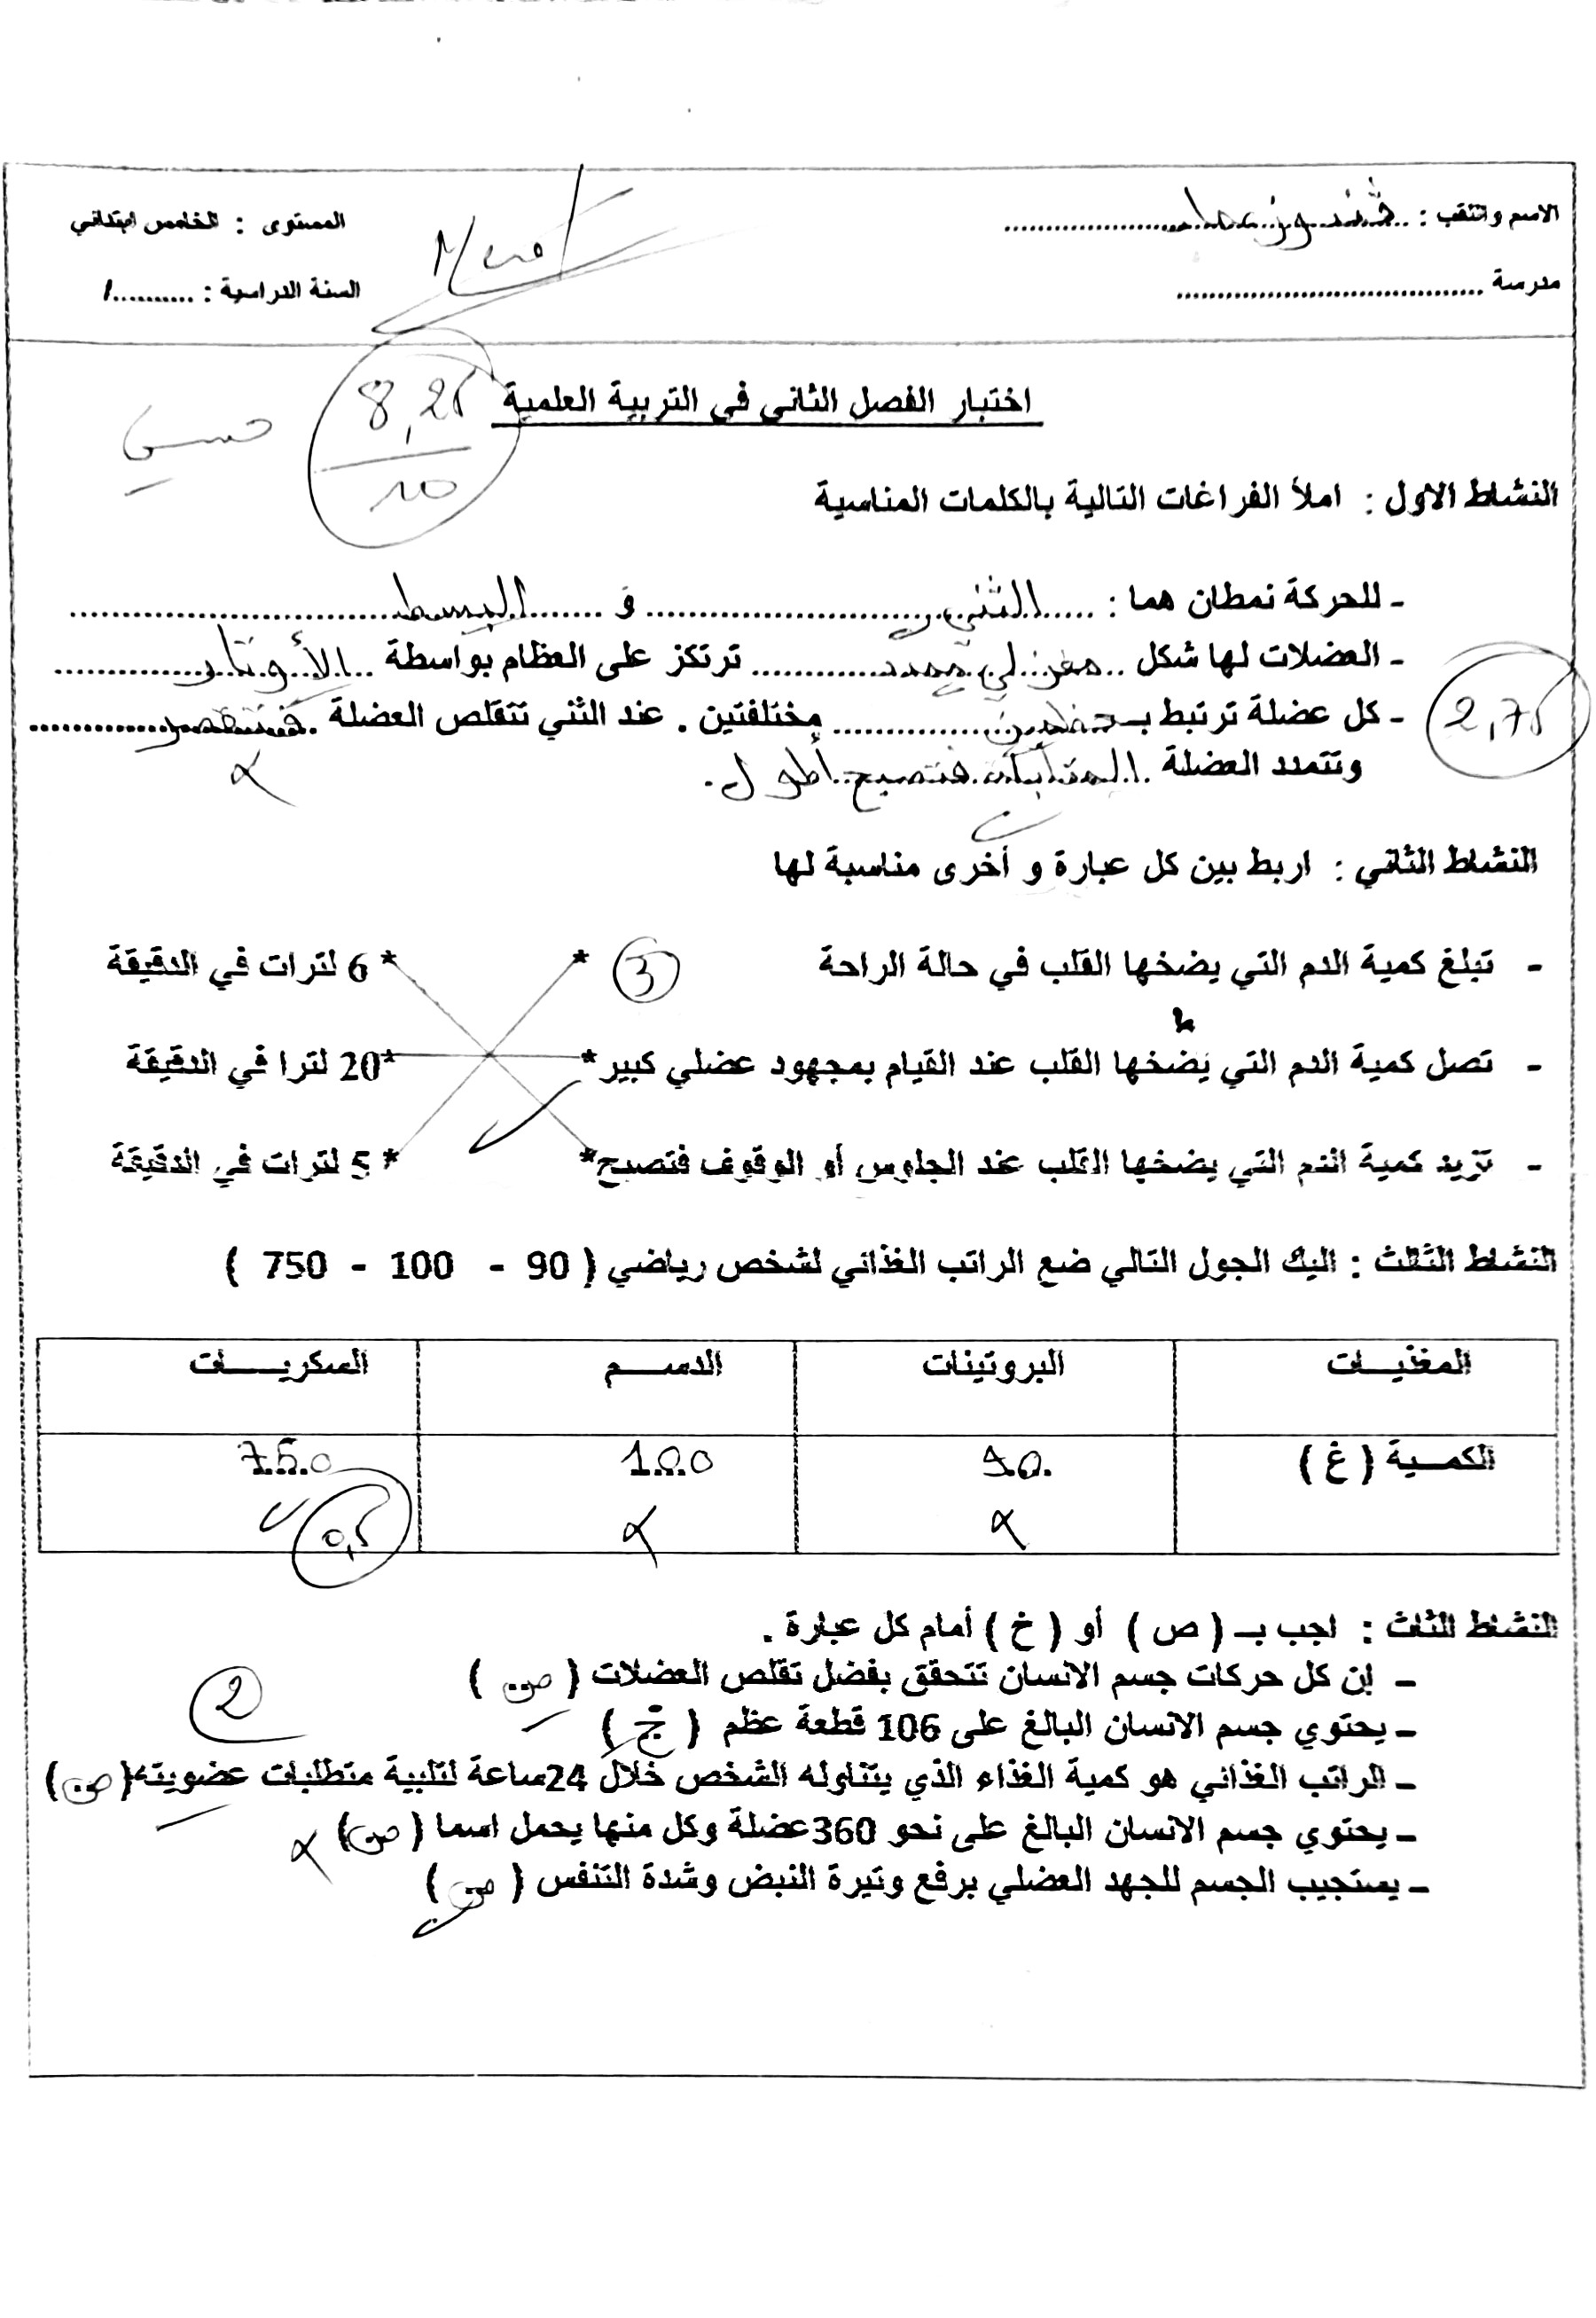 الاسم واللقب :
المستوى : الخامس ابتدائي
مدرسة ....................
السنة الدراسية : ........../
8,25
10
اختبار الفصل الثاني في التربية العلمية
النشاط الاول : املأ الفراغات التالية بالكلمات المناسبة
- للحركة نمطان هما : الثني و البسط
- العضلات لها شكل مغزلي ممدد ترتكز على العظام بواسطة الأوتار
2,75
- كل عضلة ترتبط بـ عظمين مختلفتين . عند الثني تتقلص العضلة فتنتقصر
وتتمدد العضلة المقابلة فتصبح أطول.
النشاط الثاني : اربط بين كل عبارة و أخرى مناسبة لها
- تبلغ كمية الدم التي يضخها القلب في حالة الراحة * 3 * 6 لترات في الدقيقة
- تصل كمية الدم التي يضخها القلب عند القيام بمجهود عضلي كبير* *20 لترا في الدقيقة
- تزيد كمية الدم التي يضخها القلب عند الجلوس أو الوقوف فتصبح* * 5 لترات في الدقيقة
النشاط الثالث : اليك الجول التالي ضع الراتب الغذائي لشخص رياضي ( 90 - 100 - 750 )
المغذيــات البروتينات الدســم السكريــات
الكمـية ( غ ) 90 100 750
0,5
النشاط الثاث : اجب بـ ( ص ) أو ( خ ) أمام كل عبارة .
- إن كل حركات جسم الانسان تتحقق بفضل تقلص العضلات ( ص )
2
- يحتوي جسم الانسان البالغ على 106 قطعة عظم ( خ )
- الراتب الغذائي هو كمية الغذاء الذي يتناوله الشخص خلال 24ساعة لتلبية متطلبات عضويته ( ص )
- يحتوي جسم الانسان البالغ على نحو 360عضلة وكل منها يحمل اسما ( ص )
- يستجيب الجسم للجهد العضلي برفع وتيرة النبض وشدة التنفس ( ص )